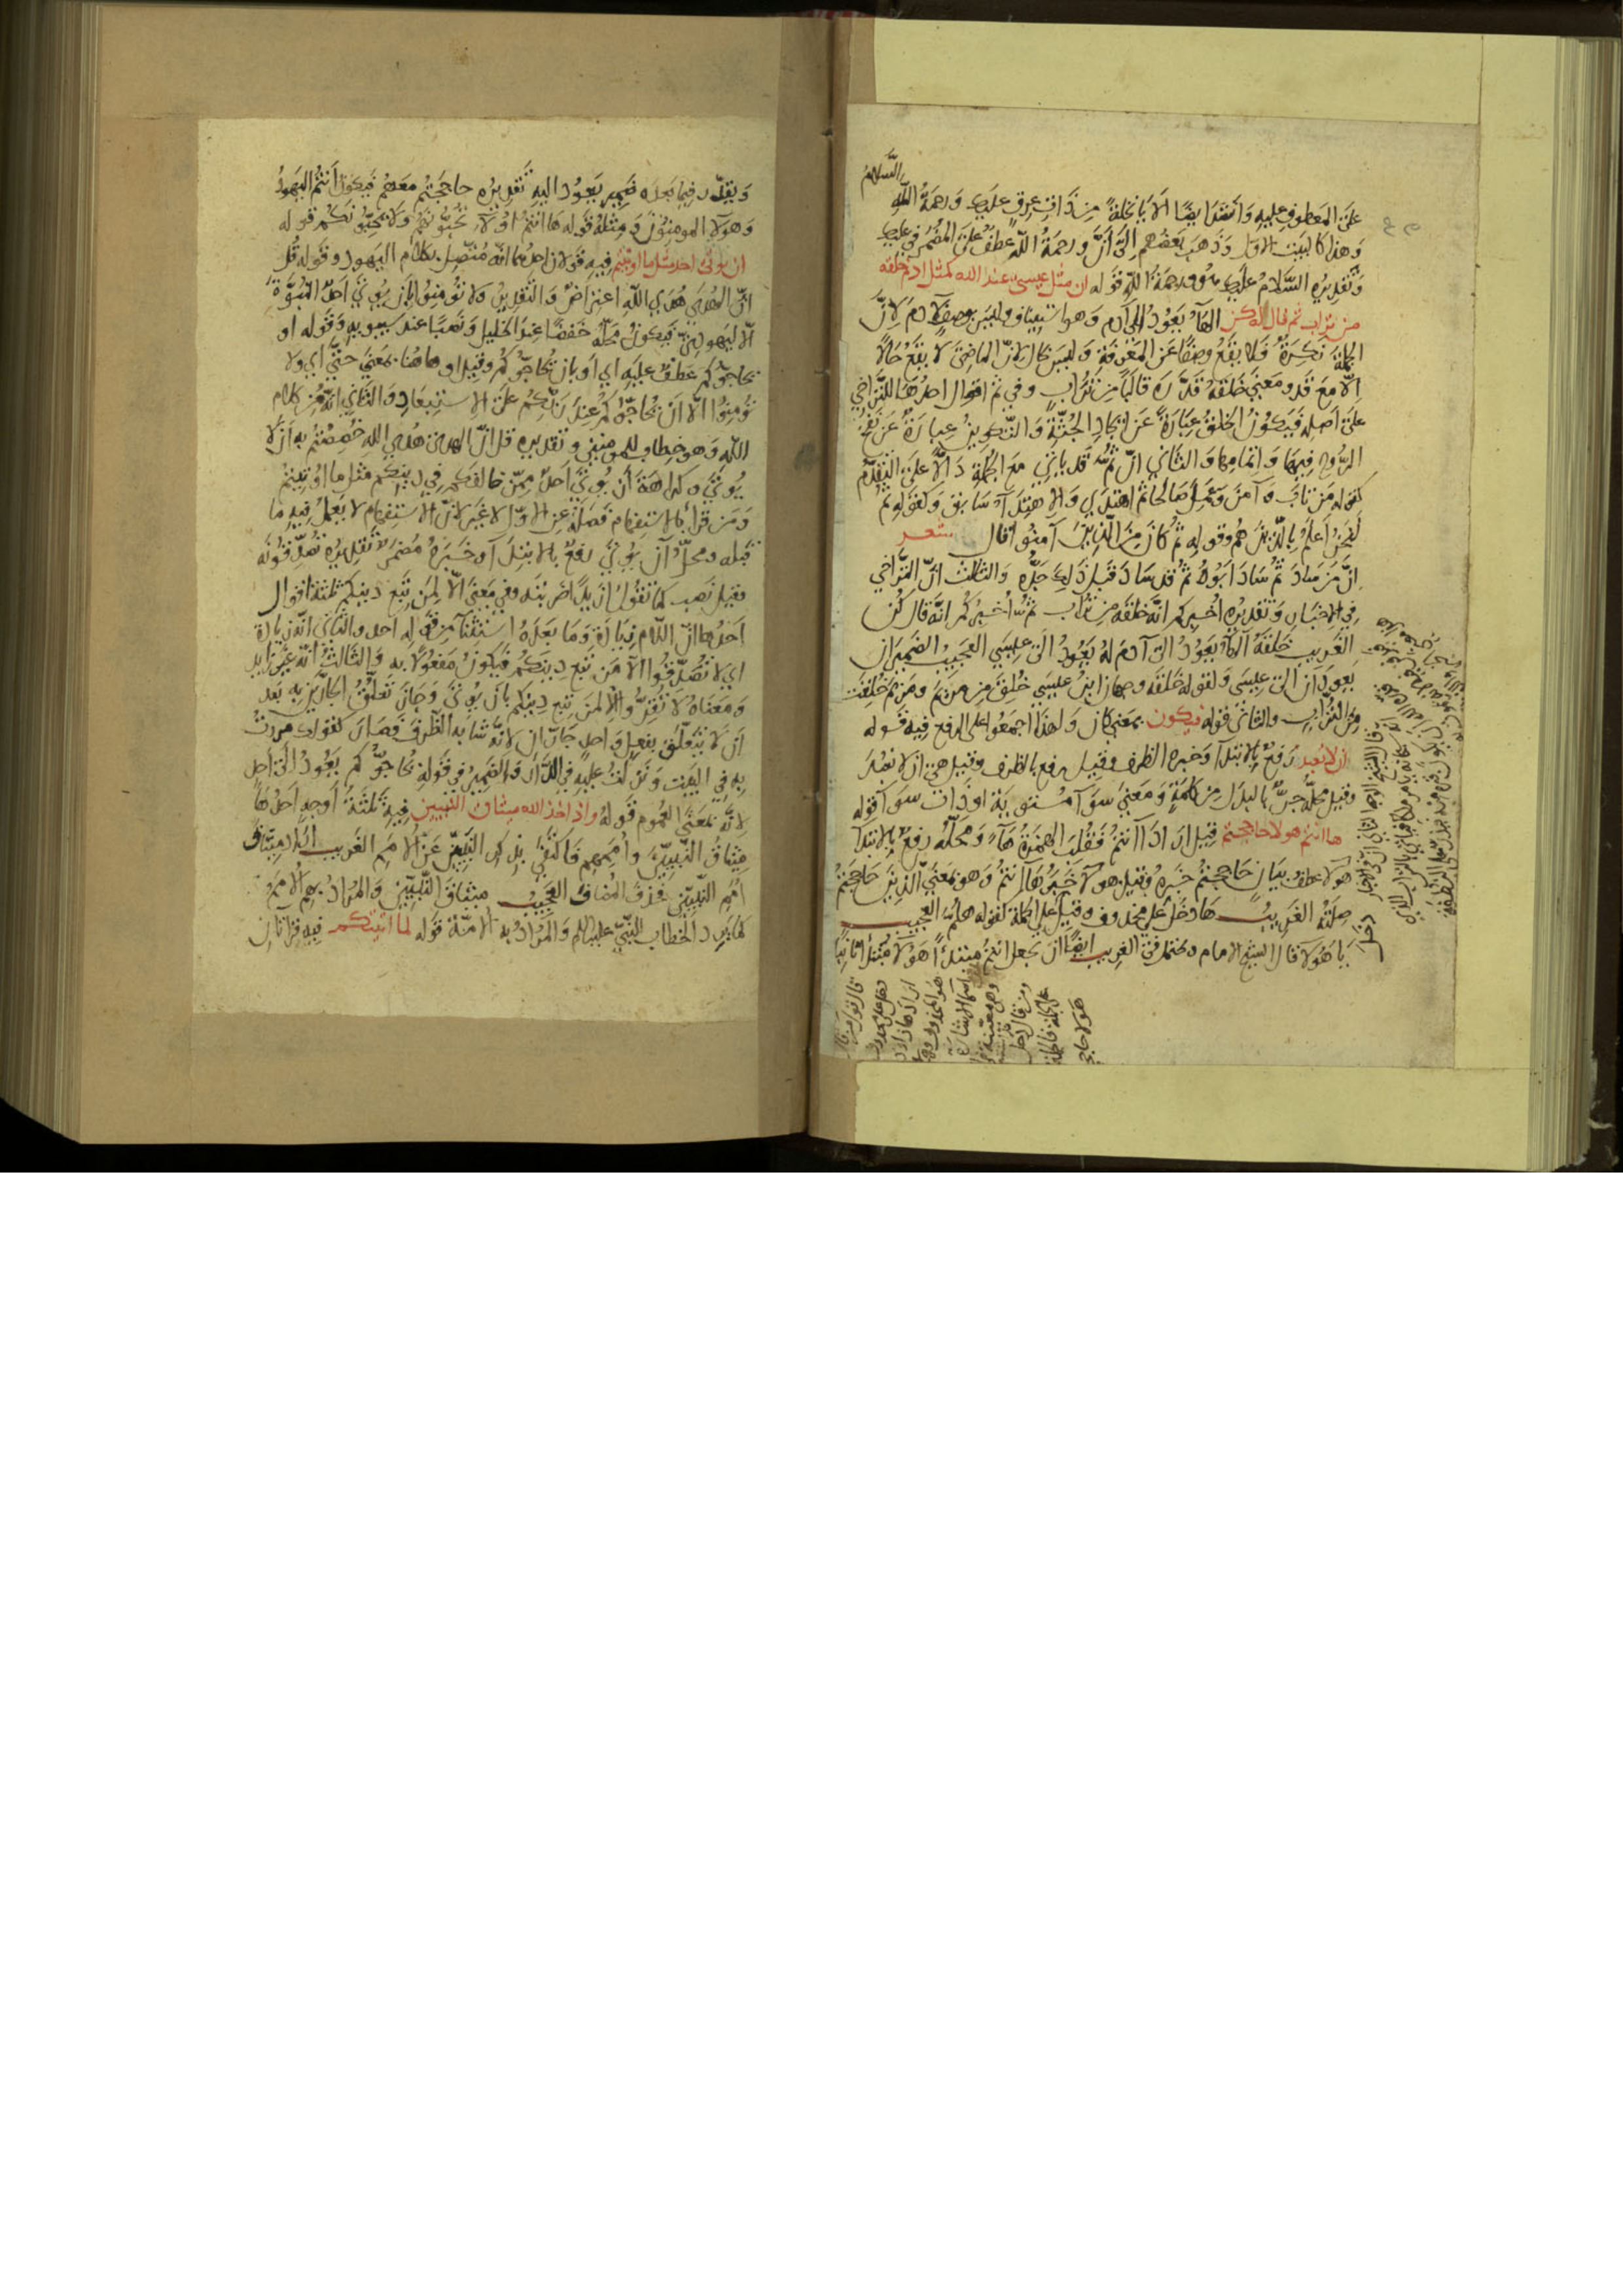 السلام
على المعطوف عليه وانشد ايضا الا يا نخلة من ذات عرق عليك ورحمة الله
وهذا كالبيت الاول وذهب بعضهم الى ان ورحمة الله عطف على المضمر في عليك
وتقديره السلام عليك ورحمة الله قوله ان مثل عيسى عند الله كمثل ادم خلقه
من تراب ثم قال له كن الهاء يعود الى آدم وهو استيناف وليس بوصف لآدم لان
الجملة نكرة فلا يقع وصفا عن المعرفة وليس بحال لان الماضي لا يقع حالا
الا مع قد ومعنى خلقه قدره قالبا من تراب وفي ثم اقوال احدها للتراخي
على اصله فيكون الخلق عبارة عن ايجاد الجثة والتكوين عبارة عن نفخ
الروح فيها واتمامها والثاني ان ثم قد ياتي مع الجملة دالا على التقدم
كقوله من تاب وآمن وعمل صالحا ثم اهتدى والاهتداء سابق وكقوله ثم
لنحن اعلم بالذين هم وقوله ثم كان من الذين آمنوا قال شعر
ان من ساد ثم ساد ابوه ثم قد ساد قبل ذلك جده والثالث ان التراخي
في الاخبار وتقديره اخبركم انه خلقه من تراب ثم اخبركم انه قال كن
الغريب خلقه الهاء يعود الى آدم له يعود الى عيسى العجيب الضميران
يعودان الى عيسى ولقوله خلقه وجهان احدهما عيسى خلق من مريم ومريم خلقت
من التراب والثاني قوله فيكون بمعنى كان ولهذا اجمعوا على الرفع فيه قوله
ان لا نعبد رفع بالابتداء وخبره الظرف وقيل رفع بالظرف وقيل هي ان لا نعبد
وقيل محله جر بالبدل من كلمة ومعنى سواء مستوية او ذات سواء قوله
ها انتم هولاء حاججتم قيل اراد اانتم فقلب الهمزة هاء ومحله رفع بالابتداء
هولاء عطف بيان حاججتم خبره وقيل هولاء خبر ها انتم وهو بمعنى الذين حاججتم
صلته الغريب ها دخل على محذوف وقيل على الجملة لقوله هلم العجيب
يا هولاء قال الشيخ الامام ويحتمل في الغريب ايضا ان يجعل انتم مبتدأ هولاء مبتدأ ثانيا
ويقدر فيما بعده ضمير يعود اليه تقديره حاججتم معهم فيكون انتم اليهود
وهولاء المومنون ومثله قوله ها انتم اولاء تحبونهم ولا يحبونكم قوله
ان يوتى احد مثل ما اوتيتم فيه قولان احدهما انه متصل بكلام اليهود وقوله قل
ان الهدى هدى الله اعتراض والتقدير ولا تؤمنوا بان يوتى احد النبوة
الا اليهود فيكون محله خفضا عند الخليل ونصبا عند سيبويه وقوله او
يحاجوكم عطف عليه اي او بان يحاجوكم وقيل او هاهنا بمعنى حتى اي ولا
تؤمنوا الا ان يحاجوكم عند ربكم على الاستبعاد والثاني انه من كلام
الله وهو خطاب للمومنين وتقديره قل ان الهدى هدى الله خصصتم به ان لا
يوتى وكراهة ان يوتى احد ممن خالفكم في دينكم مثل ما اوتيتم
ومن قرا بالاستفهام فصله عن الاول لا غير لان الاستفهام لا يعمل فيه ما
قبله ومحل ان يوتى رفع بالابتداء وخبره مضمر تقديره تصدقونه
وقيل نصب كما تقول ازيدا ضربته وفي معنى الا لمن تبع دينكم ثلثة اقوال
احدها ان اللام زيادة وما بعده استثناء من قوله احد والثاني انه زيادة
اي لا تصدقوا الا من تبع دينكم فيكون مفعولا به والثالث انه غير زايد
ومعناه لا تقروا الا لمن تبع دينكم بان يوتى وجاز تعلق الجارين به بعد
ان لا يتعلق بفعل واحد جاران لانه شابه الظرف فصار كقولك مررت
به في البيت ونزلت عليه في الدار والضمير في قوله يحاجوكم يعود الى احد
لانه بمعنى العموم قوله واذ اخذ الله ميثاق النبيين فيه ثلثة اوجه احدها
ميثاق النبيين وأممهم فاكتفى بذكر النبيين عن الامم الغريب اراد ميثاق
امم النبيين فحذف المضاف العجيب ميثاق النبيين والمراد بهم الامم
كما يرد الخطاب للنبي عليه السلام والمراد به الامة قوله لما اتيتكم فيه قراتان